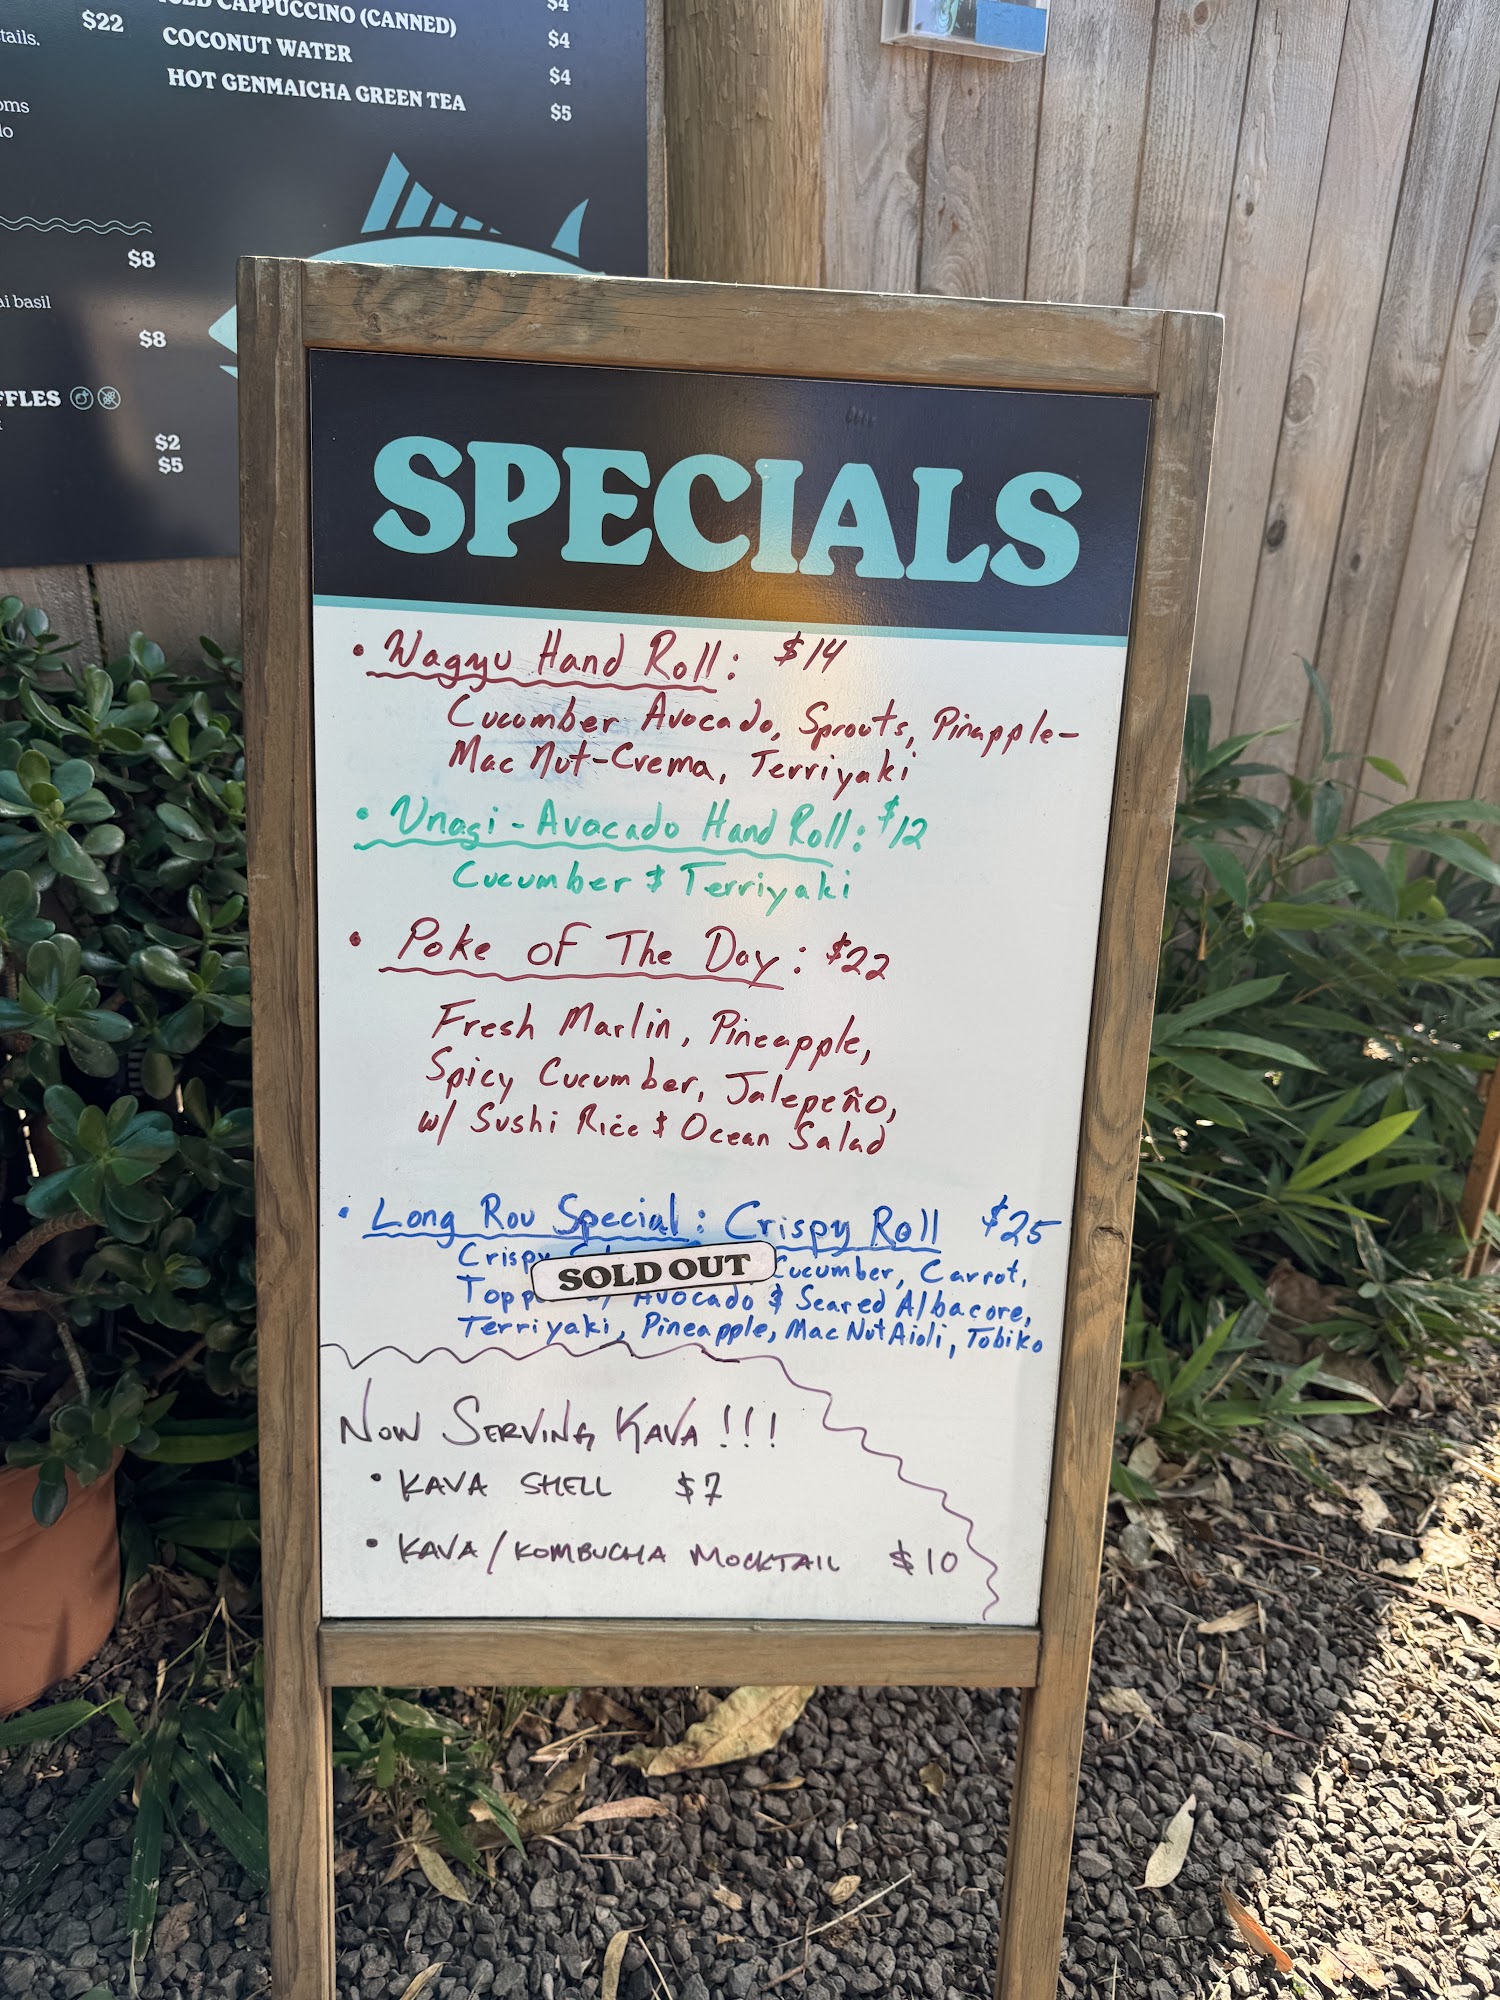 $22
tails.
CAPPUCCINO (CANNED)
$4
COCONUT WATER
$4
HOT GENMAICHA GREEN TEA
$4
$5
$8
basil
$8
$2
$5
SPECIALS
• Wagyu Hand Roll: $14
Cucumber Avocado, Sprouts, Pinapple-
Mac Nut-Crema, Terriyaki
• Unagi-Avocado Hand Roll: $12
Cucumber & Terriyaki
• Poke of The Day: $22
Fresh Marlin, Pineapple,
Spicy Cucumber, Jalepeño,
w/ Sushi Rice & Ocean Salad
• Long Rou Special: Crispy Roll $25
Crispy Cucumber, Carrot,
SOLD OUT
Avocado & Seared Albacore,
Terriyaki, Pineapple, Mac Nut Aioli, Tobiko
NOW SERVING KAVA!!!
• KAVA SHELL $7
• KAVA/KOMBUCHA MOCKTAIL $10